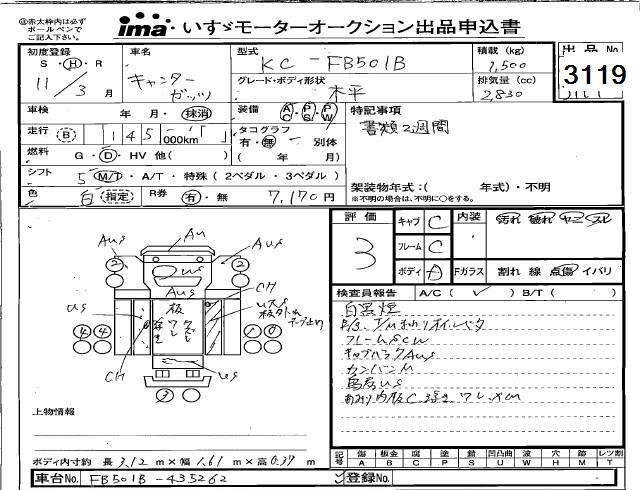 ◎赤太枠内は必ず
ボールペンで
ご記入下さい。
ima いすゞモーターオークション出品申込書
初度登録
S・H・R
11/3 月
車名
キャンター
ガッツ
型式
KC-FB501B
グレード・ボディ形状
木平
積載 (kg)
1,500
排気量 (cc)
2,830
出品No.
3119
車検 年・月・抹消
装備 AC・PS・PW
特記事項
書類2週間
走行 B 145,000km
タコグラフ
有・無 別体
( 年 月)
燃料 G・D・HV 他( )
シフト 5 M/T・A/T・特殊(2ペダル・3ペダル)
架装物年式:( 年式)・不明
※不明の場合は、不明に○をする。
色 白 指定 R券 有・無 7,170円
評価
3
キャブ C
フレーム C
ボディ A
内装 汚れ 破れ ヤニ スレ
Fガラス 割れ 線 点傷 イバリ
検査員報告 A/C( ✓ ) B/T( )
白黒煙
フレームSCW
キャブハラクAus
カンバンM
鳥居us
Aus Au Aus
2 2
us
Aus
us CH
板
板
4 4
CH us
3
上物情報
ボディ内寸約 長 3.12 m×幅 1.61 m×高 0.37 m
記号 傷A 板金B 腐C 塗P 錆S 凹凸曲U 波W 穴H 跡M レツ割T
車台No. FB501B-435262
登録No.